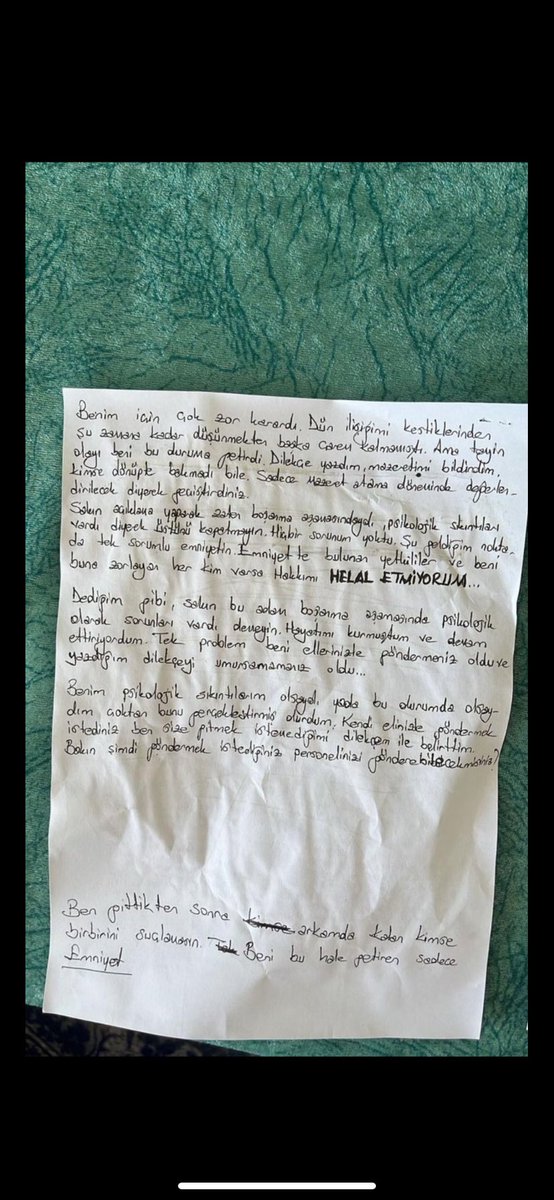 Benim için çok zor karardı. Dün ilişiğimi kestiklerinden
şu zamana kadar düşünmekten başka çarem kalmamıştı. Ama tayin
olayı beni bu duruma getirdi. Dilekçe yazdım, mazeretimi bildirdim,
kimse dönüpte bakmadı bile. Sadece mazeret atama döneminde değerlen-
dirilecek diyerek geçiştirdiniz.
Sakın açıklama yaparak zaten boşanma aşamasındaydı, psikolojik sıkıntıları
vardı diyerek üstünü kapatmayın. Hiçbir sorunum yoktu. Şu geldiğim nokta-
da tek sorumlu emniyettir. Emniyet'te bulunan yetkililer ve beni
buna zorlayan her kim varsa Hakkımı HELAL ETMİYORUM...
Dediğim gibi, sakın bu adam boşanma aşamasında psikolojik
olarak sorunları vardı demeyin. Hayatımı kurmuştum ve devam
ettiriyordum. Tek problem beni ellerinizle göndermeniz oldu ve
yazdığım dilekçeyi umursamamanız oldu...
Benim psikolojik sıkıntılarım olsaydı, yada bu durumda olsay-
dım çoktan bunu gerçekleştirmiş olurdum. Kendi elinizle göndermek
istediniz ben size gitmek istemediğimi dilekçem ile belirttim.
Bakın şimdi göndermek istediğiniz personelinizi gönderebilecekmisiniz?
Ben gittikten sonra kimse arkamda kalan kimse
birbirini suçlamasın. Tek Beni bu hale getiren sadece
Emniyet